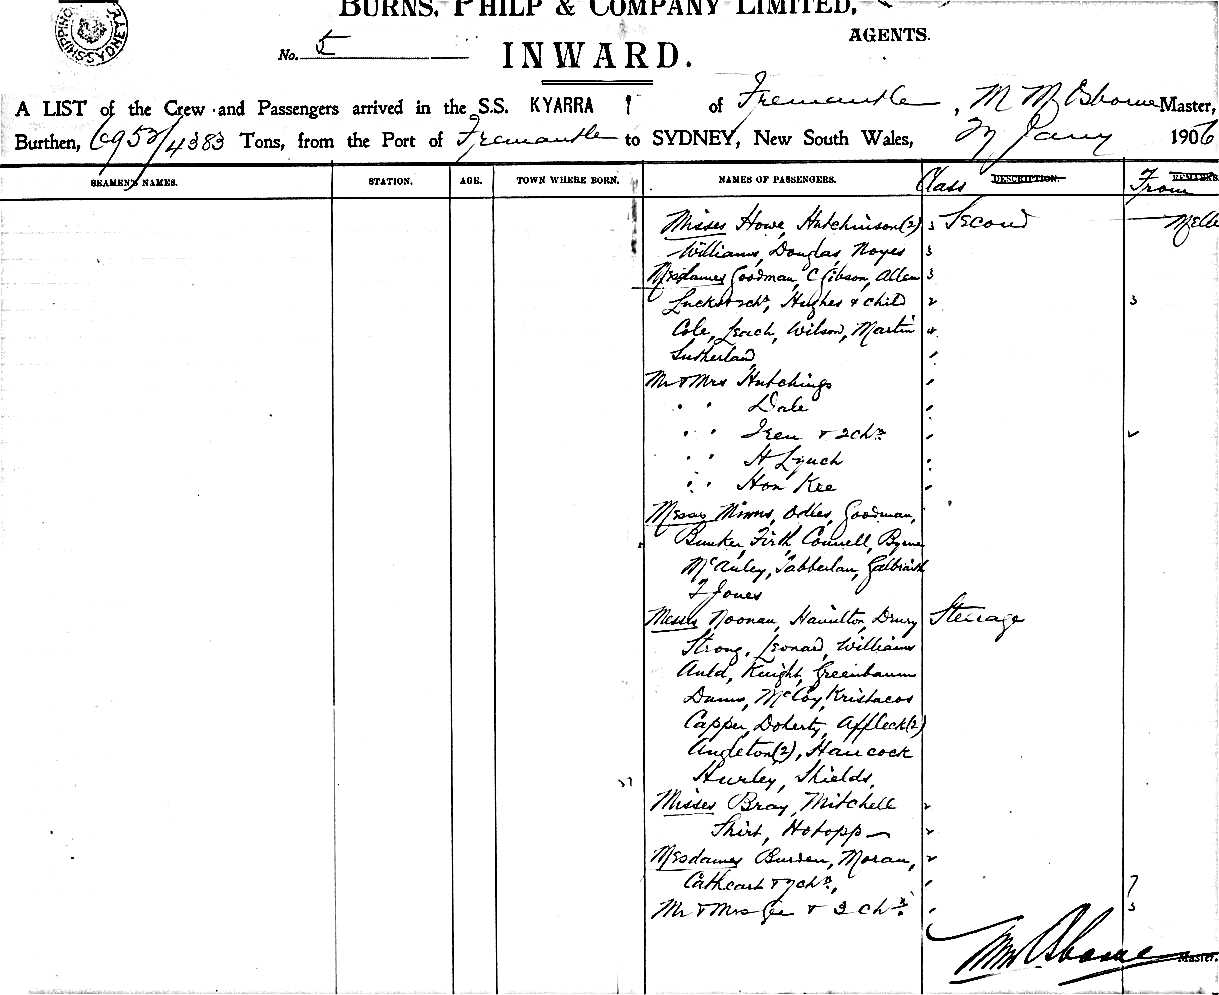 BURNS, PHILP & COMPANY LIMITED,
AGENTS.
No. 5
INWARD.
A LIST of the Crew and Passengers arrived in the S.S. KYARRA of Fremantle, Master,
Burthen, 6953/4383 Tons, from the Port of Fremantle to SYDNEY, New South Wales, 27 Jany 1906
SEAMENS NAMES. STATION. AGE. TOWN WHERE BORN. NAMES OF PASSENGERS. Class DESCRIPTION. From REMARKS
Misses Howe, Hutchinson (2) 3 Second Melb
Williams, Douglas, Noyes 3
Mesdames Goodman, C Gibson, Allen 3
& 2 ch., Hughes & child 2 3
Cole, Leach, Wilson, Martin 4
Sutherland
Mr & Mrs Hutchings
" " Dale
" " & 2 chn
" " H Lynch
" " Hon Kee
Messrs Minns, Odles, Goodman,
Bunker, Firth, Connell, Byrne
McAuley, Tabberlan, Galbraith
T Jones
Messrs Noonan, Hamilton, Drury Steerage
Strong, Leonard, Williams
Auld, Knight, Greenbaum
McCoy, Kristacos
Capper, Doherty, Affleck (2)
Angleton (2), Hancock
Hurley, Shields,
Misses Bray, Mitchell 2
Shirt, Hotopp 2
Mesdames Burden, Moran, 2
Cathcart & 7 chn, 7
Mr & Mrs Gee & 3 chn. 3
Master.